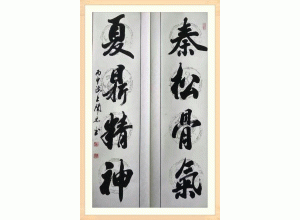 秦松骨氣
夏鼎精神